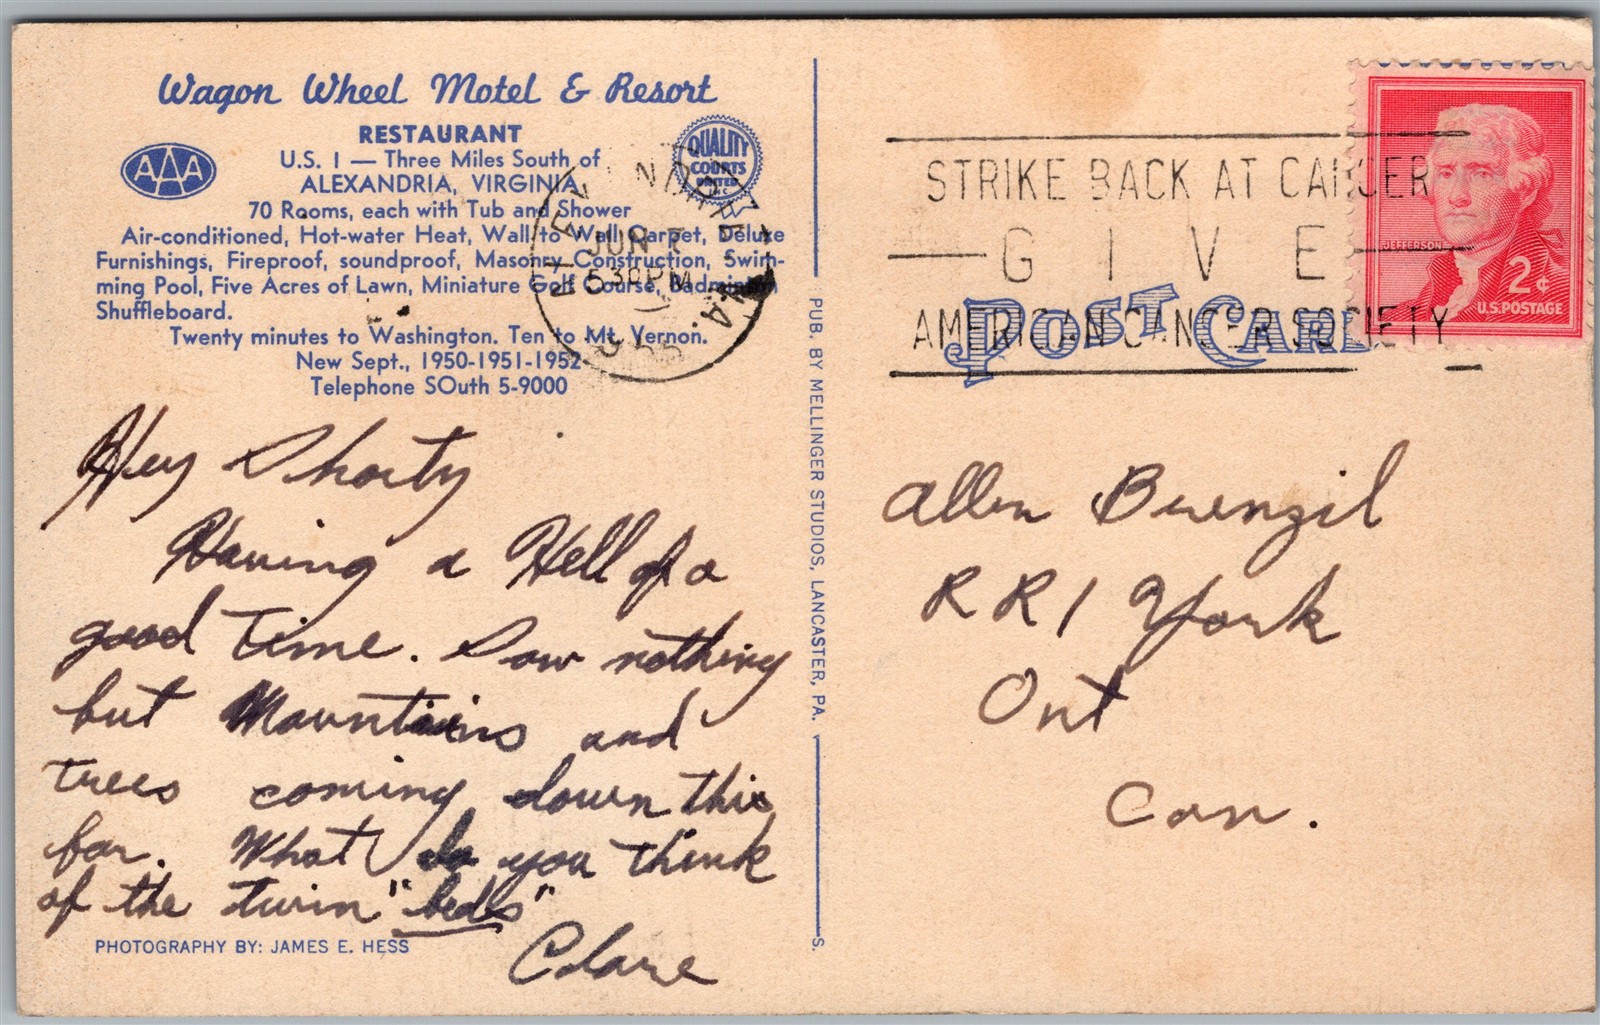 Wagon Wheel Motel & Resort
RESTAURANT
AAA
QUALITY
COURTS
UNITED
INC
U.S. 1 — Three Miles South of
ALEXANDRIA, VIRGINIA
70 Rooms, each with Tub and Shower
Air-conditioned, Hot-water Heat, Wall to Wall Carpet, Deluxe
Furnishings, Fireproof, soundproof, Masonry Construction, Swim-
ming Pool, Five Acres of Lawn, Miniature Golf Course, Badminton
Shuffleboard.
Twenty minutes to Washington. Ten to Mt. Vernon.
New Sept., 1950-1951-1952
Telephone SOuth 5-9000
JUN 7
530 PM
VA.
Hey Shorty
Having a Hell of a
good time. Saw nothing
but Mountains and
trees coming down this
far. What do you think
of the twin "beds"
Clare
PHOTOGRAPHY BY: JAMES E. HESS
PUB. BY MELLINGER STUDIOS, LANCASTER, PA.
S.
STRIKE BACK AT CANCER
GIVE
AMERICAN CANCER SOCIETY
POST CARD
JEFFERSON
2¢
U.S. POSTAGE
Allen Buenzil
RR1 York
Ont
Can.